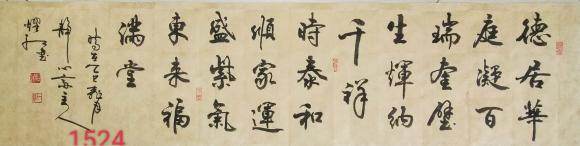 德居華
庭凝百
瑞奎壁
生輝納
千祥
時泰和
順家運
盛紫氣
東来福
滿堂
1524